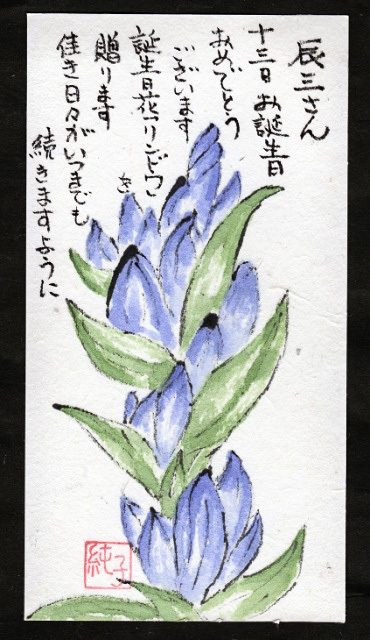 辰三さん
十三日お誕生日
おめでとう
ございます
誕生日花「リンドウ」を
贈ります
佳き日々がいつまでも
続きますように
純子